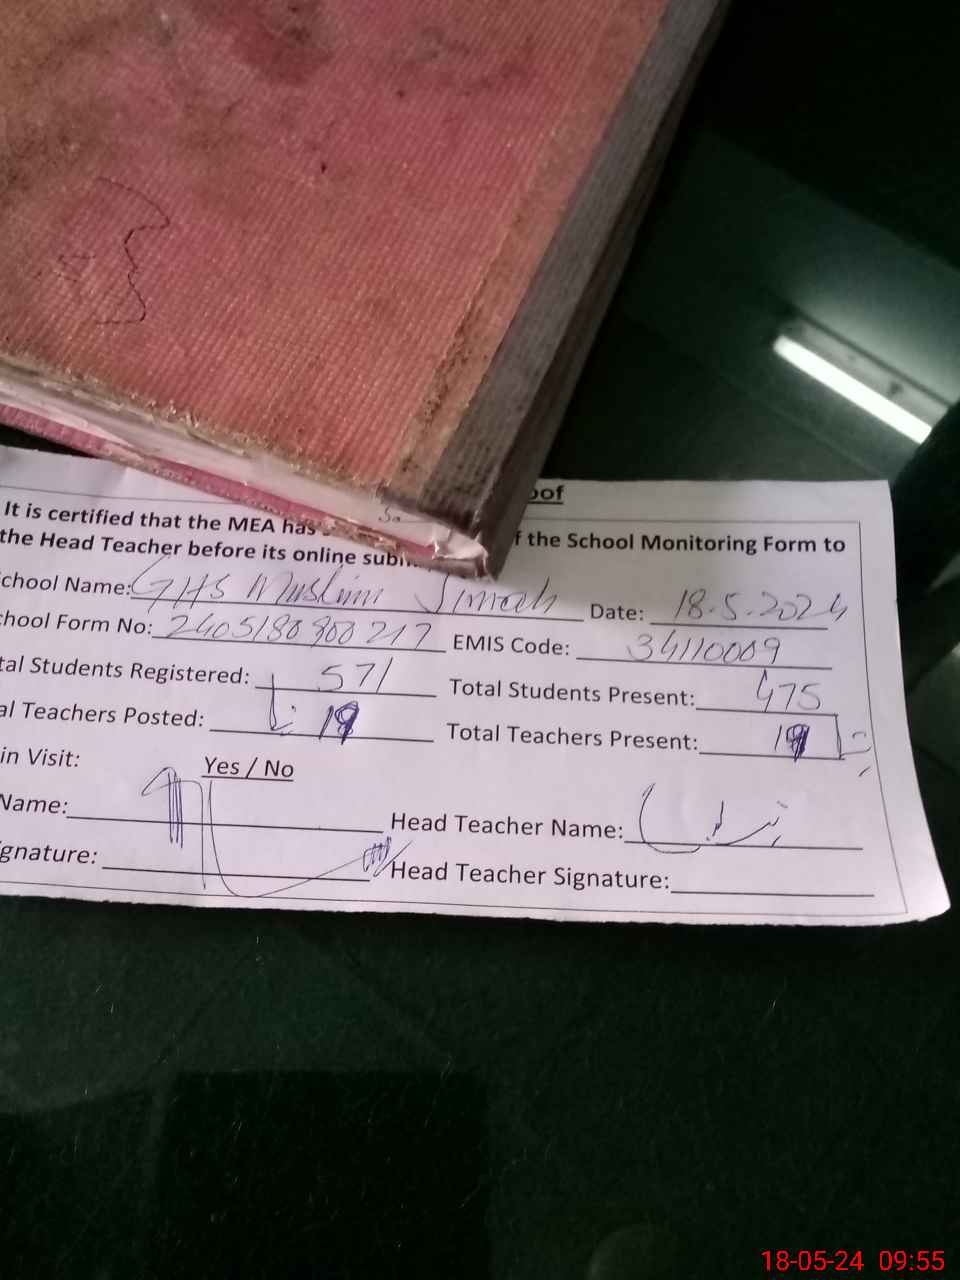 oof
It is certified that the MEA has f the School Monitoring Form to
the Head Teacher before its online subm
chool Name: GHS Muslim Date: 18.5.2024
hool Form No: 2405180800217 EMIS Code: 34110009
tal Students Registered: 571 Total Students Present: 475
al Teachers Posted: 19 Total Teachers Present: 19
in Visit: Yes / No
Name: Head Teacher Name:
gnature: Head Teacher Signature:
18-05-24 09:55